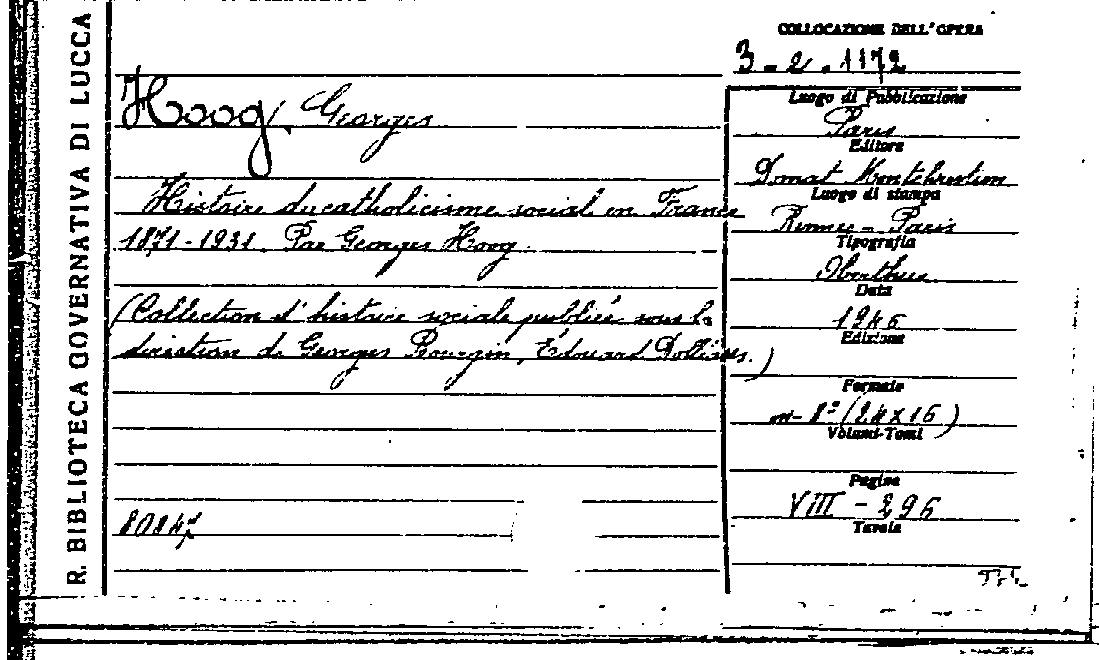 R. BIBLIOTECA GOVERNATIVA DI LUCCA
COLLOCAZIONE DELL'OPERA
3-2-1172
Hoog, Georges
Histoire du catholicisme social en France
1871-1931. Par Georges Hoog.
(Collection d'histoire sociale publiée sous la
direction de Georges Bourgin, Édouard Dolléans.)
Luogo di Pubblicazione
Paris
Editore
Domat Montchrestien
Luogo di stampa
Rennes - Paris
Tipografia
Oberthur
Data
1946
Edizione
Formato
in-8° (24x16)
Volumi-Tomi
Pagine
VIII - 296
Tavole